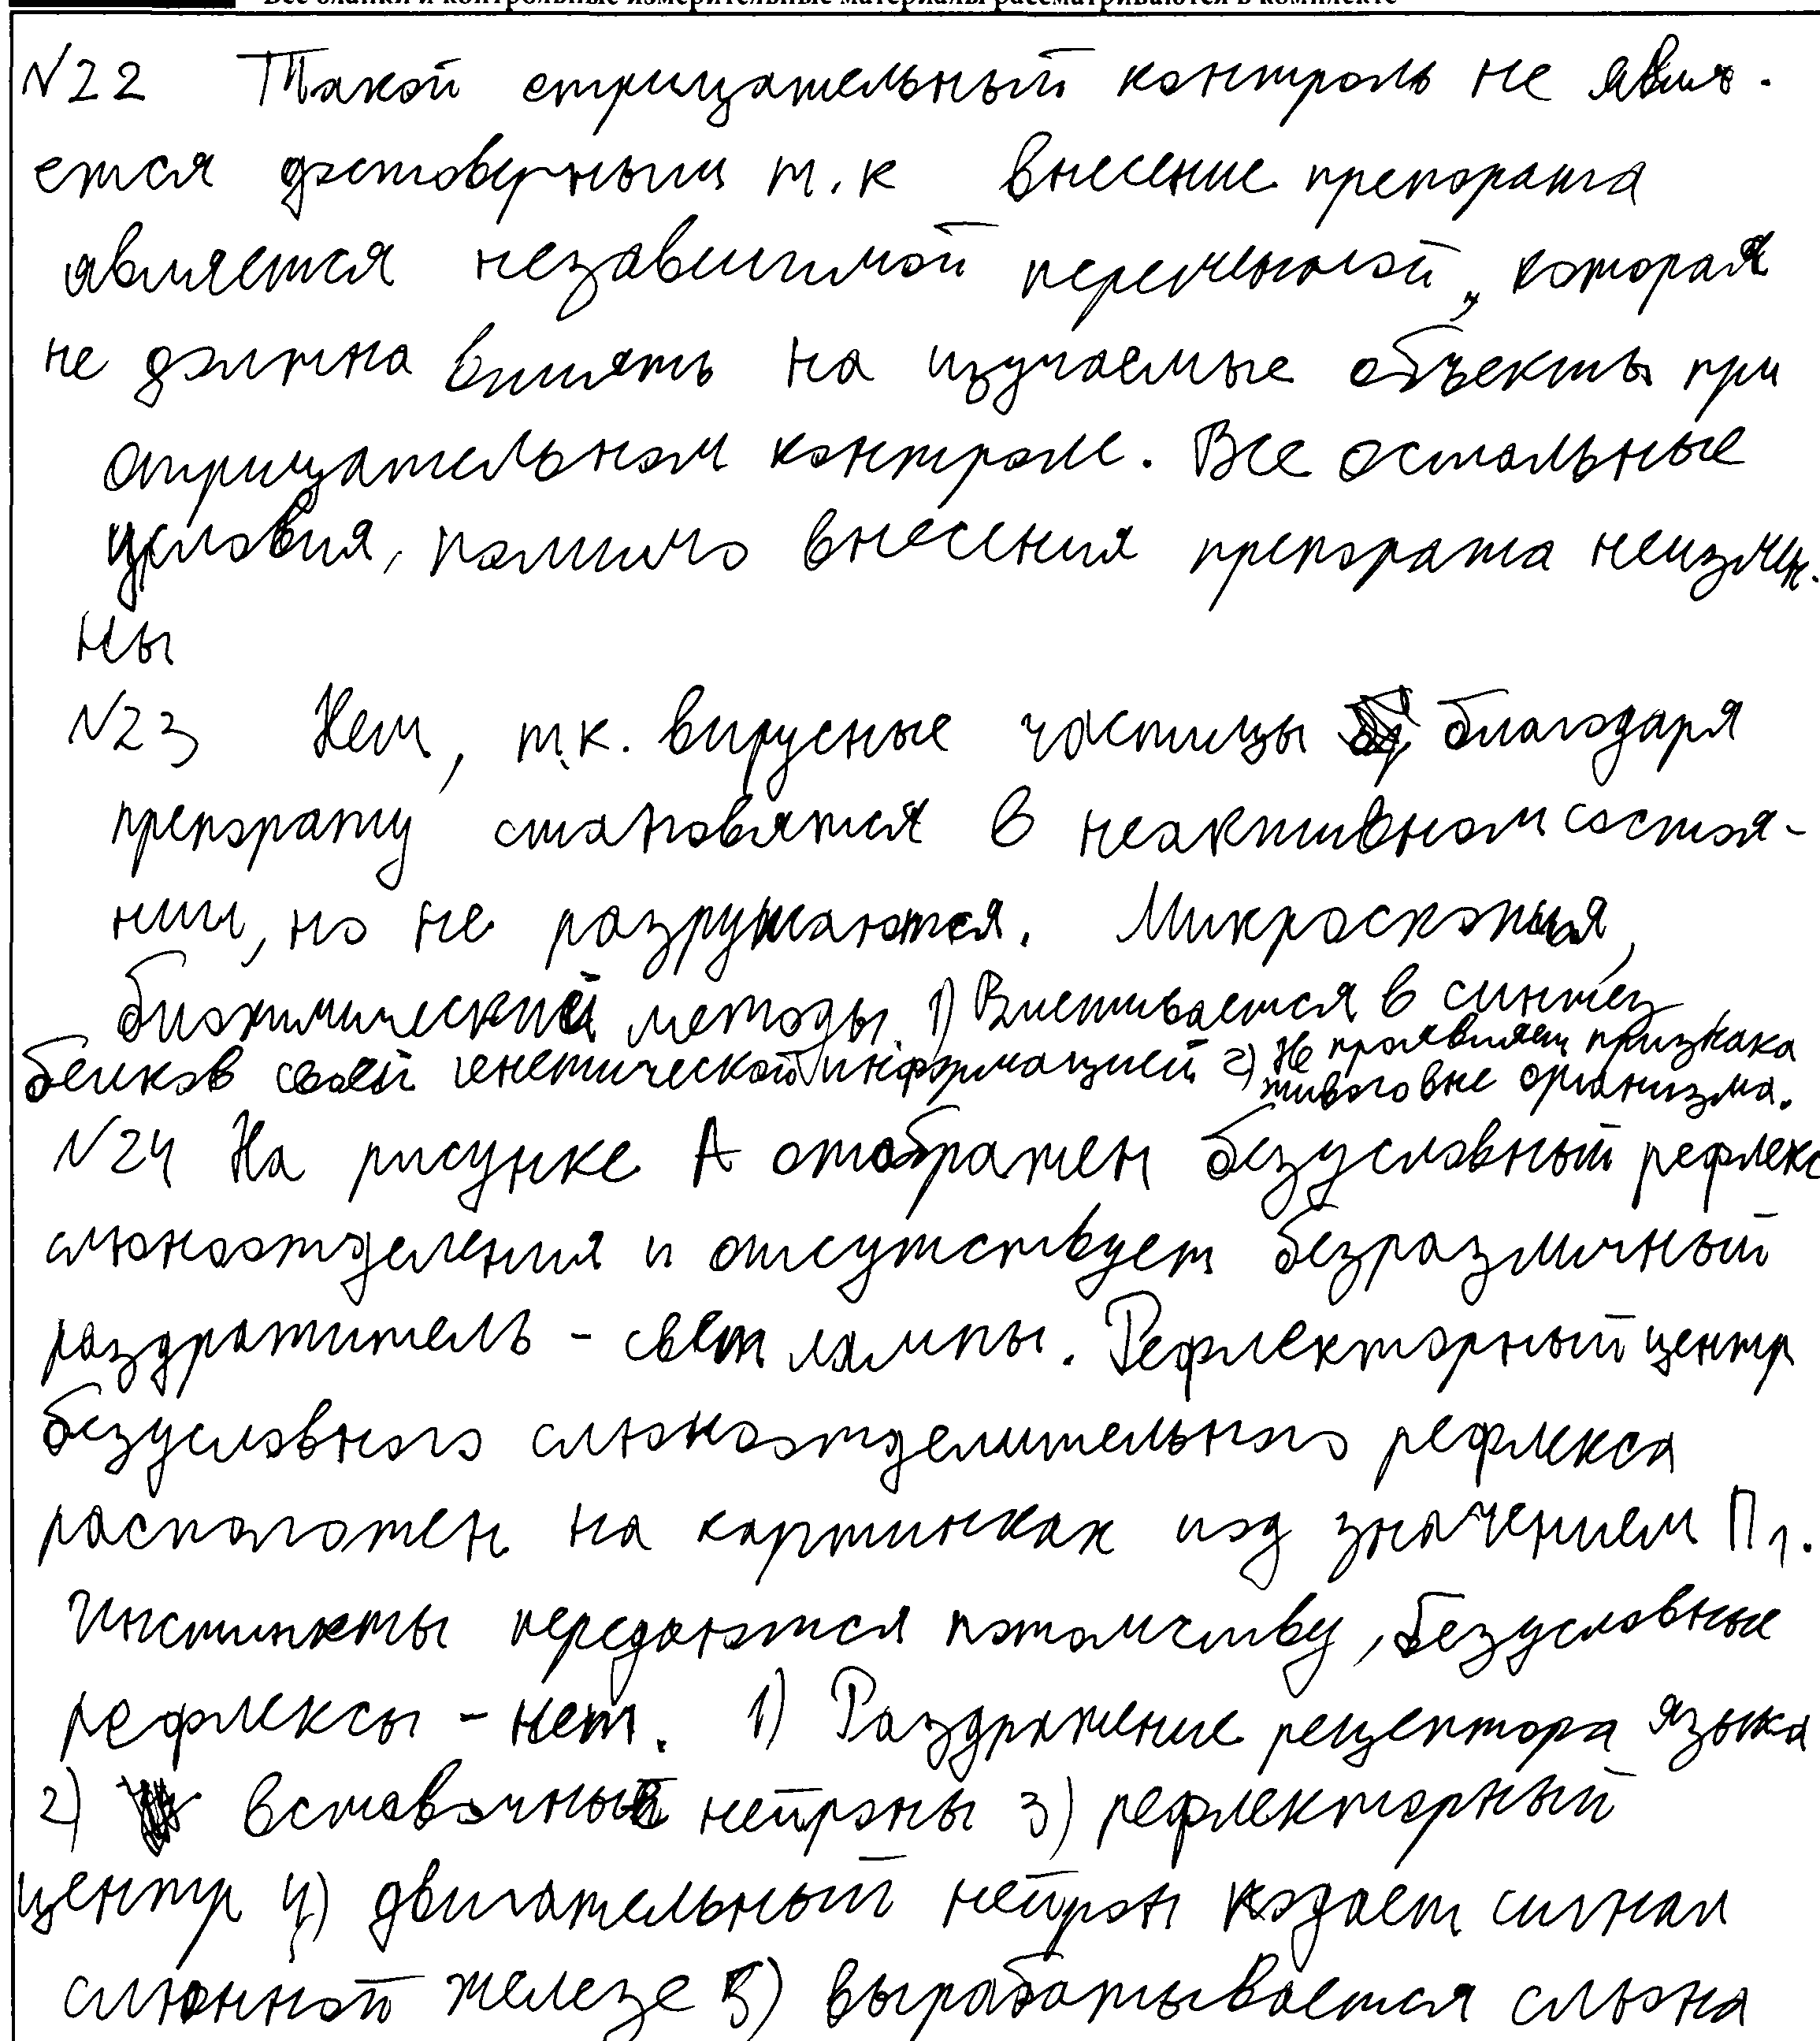 Все бланки и контрольные измерительные материалы рассматриваются в комплекте
№22 Такой отрицательный контроль не явля.
ется достоверным т.к внесение препората
является независимой переменной, которая
не должна влиять на изучаемые объекты при
отрицательном контроле. Все остальные
условия, помимо внесения препората неизмен.
ны
№23 Нет, т.к. вирусные частицы благодаря
препорату становятся в неактивном состоя-
нии, но не разрушаются. Микроскопия,
биохимический методы. 1) Вмешивается в синтез
белков своей генетической информацией 2) Не проявляет признака
живого вне организма.
№24 На рисунке А отображен безусловный рефлекс
слюноотделения и отсутствует безразличный
раздражитель - свет лампы. Рефлекторный центр
безусловного слюноотделительного рефлекса
расположен на картинках под значением П1.
Инстинкты передаются потомству, безусловные
рефлексы - нет. 1) Раздражение рецептора языка
2) вставочные нейроны 3) рефлекторный
центр 4) двигательный нейрон подает сигнал
слюнной железе 5) вырабатывается слюна